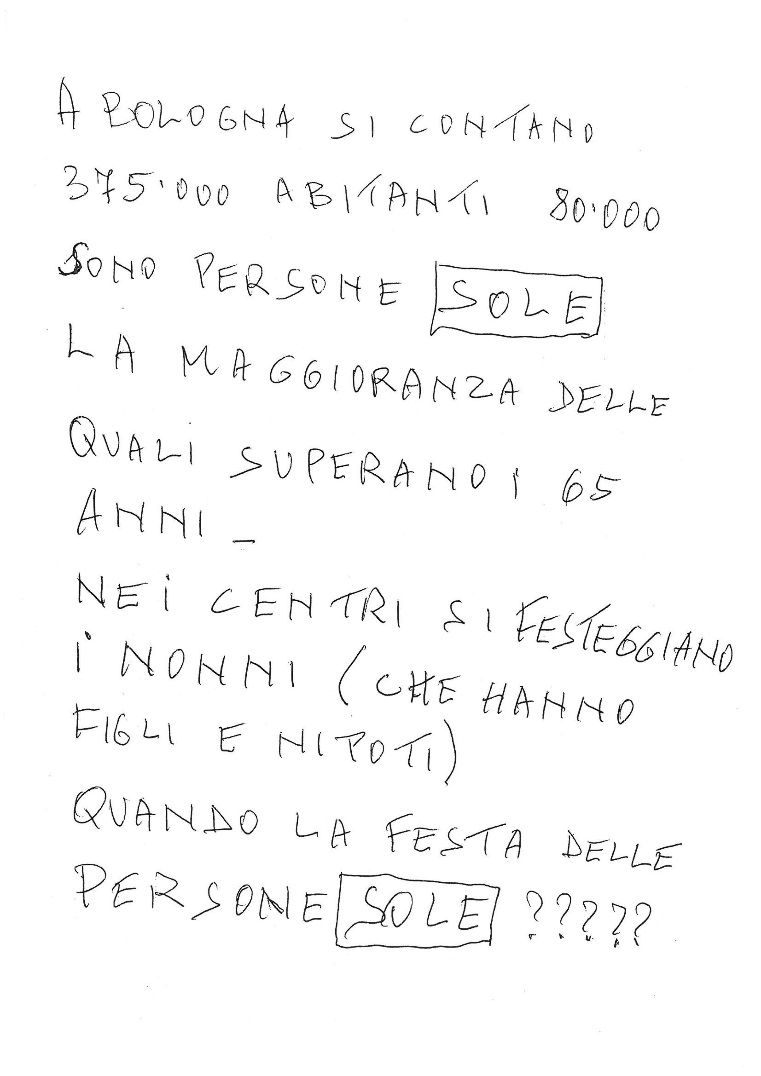 A BOLOGNA SI CONTANO
375'000 ABITANTI 80'000
SONO PERSONE SOLE
LA MAGGIORANZA DELLE
QUALI SUPERANO I 65
ANNI_
NEI CENTRI SI FESTEGGIANO
I NONNI (CHE HANNO
FIGLI E NIPOTI)
QUANDO LA FESTA DELLE
PERSONE SOLE ?????